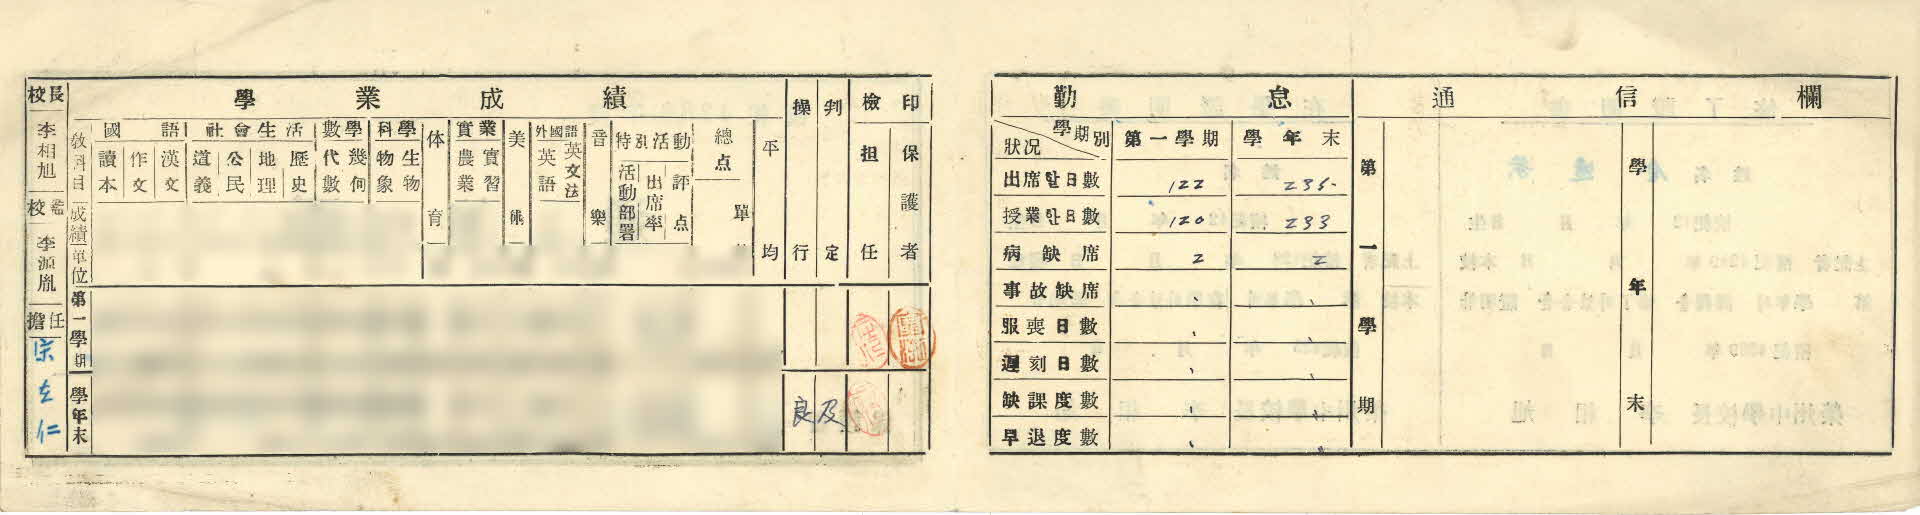 學業成績
校長 李相旭
校監 李源胤
擔任 宗
敎科目
成績單位
國語
讀本
作文
漢文
社會生活
道義
公民
地理
歷史
數學
代數
幾何
科學
物象
生物
体育
實業
農業
實習
美術
外國語
英語
英文法
音樂
特別活動
活動部署
出席率
評点
總点
單位
平均
操行
判定
檢印
担任
保護者
第一學期
學年末
良 及
勤怠
學期別
狀況
第一學期 學年末
出席한日數 122 235
授業한日數 120 233
病缺席 2 2
事故缺席
服喪日數
遲刻日數
缺課度數
早退度數
通信欄
第一學期
學年末